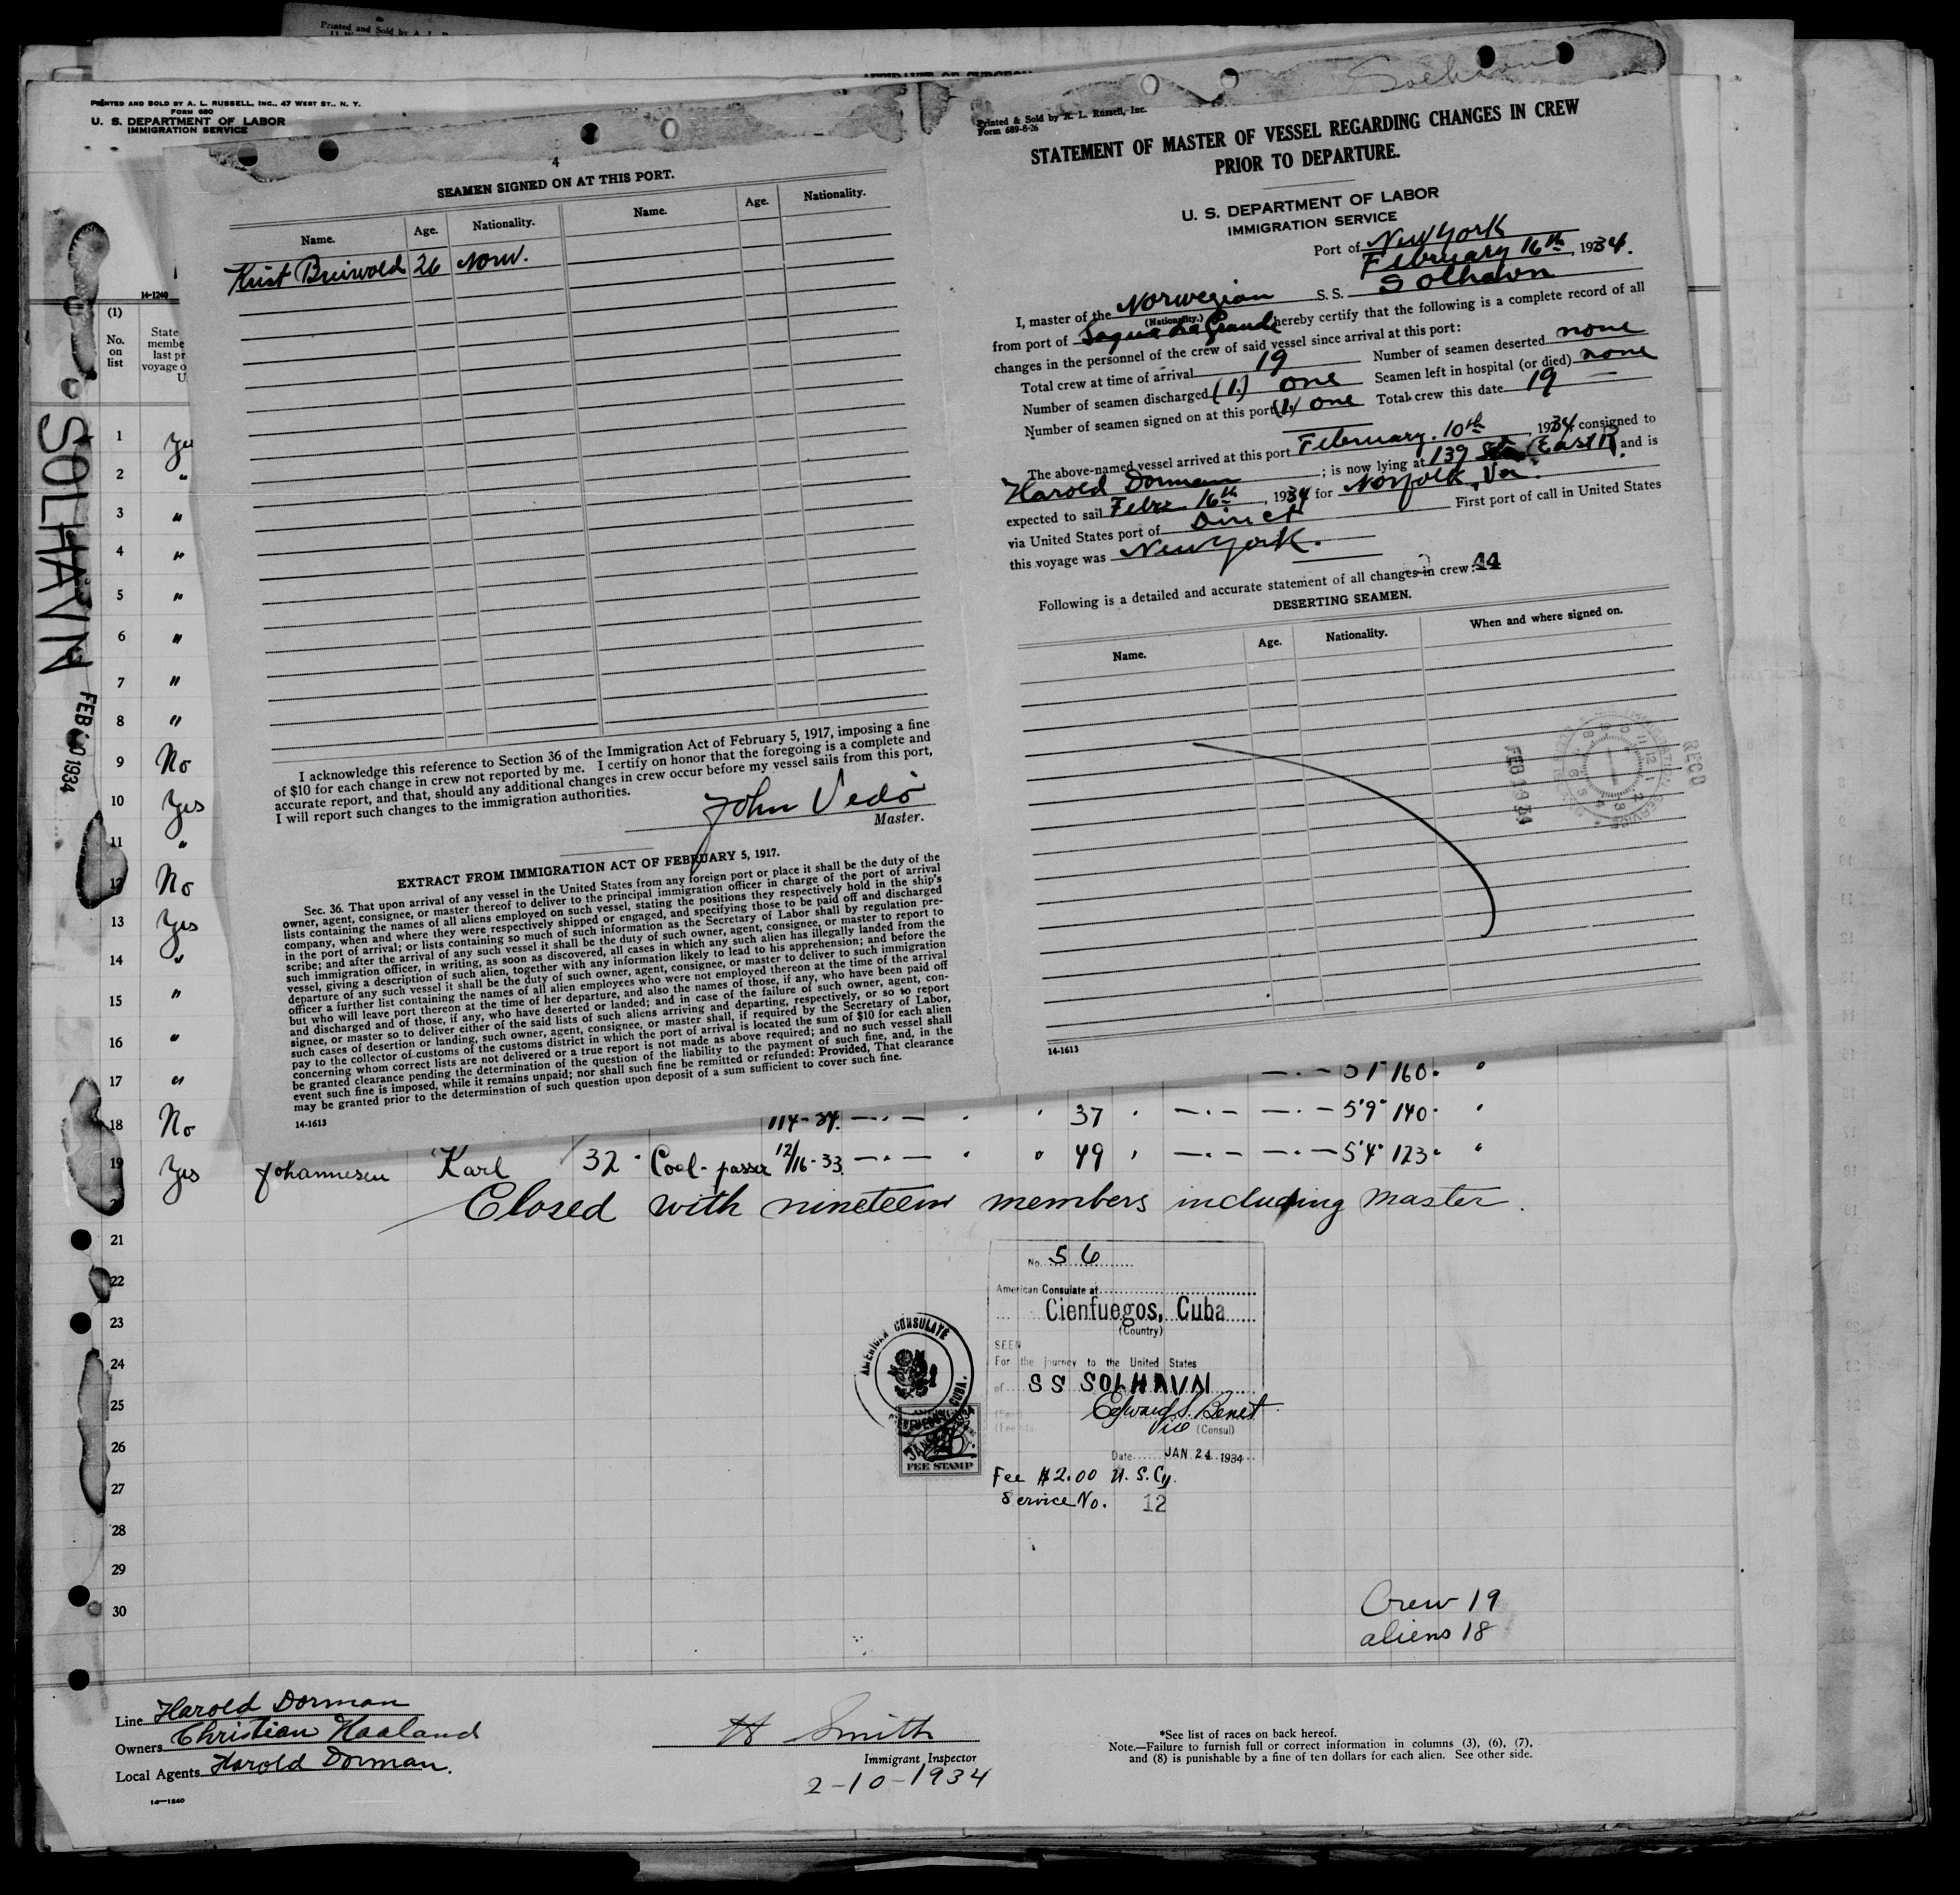 PRINTED AND SOLD BY A. L. RUSSELL, INC., 47 WEST ST., N. Y.
FORM 680
U. S. DEPARTMENT OF LABOR
IMMIGRATION SERVICE
14-1240
(1)
No.
on
list
State
membe
last pr
voyage o
U
SOLHAVN
FEB 10 1934
1 Yes
2 "
3 "
4 "
5 "
6 "
7 "
8 "
9 No
10 Yes
11 "
12 No
13 Yes
14 "
15 "
16 "
17 "
18 No
19 Yes Johannesen Karl 32 Coal-passer 12/16-33 —·— " 49 —·— —·— 5'4" 123 "
4
SEAMEN SIGNED ON AT THIS PORT.
Name. Age. Nationality. Name. Age. Nationality.
26 Norw.
I acknowledge this reference to Section 36 of the Immigration Act of February 5, 1917, imposing a fine
of $10 for each change in crew not reported by me. I certify on honor that the foregoing is a complete and
accurate report, and that, should any additional changes in crew occur before my vessel sails from this port,
I will report such changes to the immigration authorities.
John Vedö
Master.
EXTRACT FROM IMMIGRATION ACT OF FEBRUARY 5, 1917.
Sec. 36. That upon arrival of any vessel in the United States from any foreign port or place it shall be the duty of the
owner, agent, consignee, or master thereof to deliver to the principal immigration officer in charge of the port of arrival
lists containing the names of all aliens employed on such vessel, stating the positions they respectively hold in the ship's
company, when and where they were respectively shipped or engaged, and specifying those to be paid off and discharged
in the port of arrival; or lists containing so much of such information as the Secretary of Labor shall by regulation pre-
scribe; and after the arrival of any such vessel it shall be the duty of such owner, agent, consignee, or master to report to
such immigration officer, in writing, as soon as discovered, all cases in which any such alien has illegally landed from the
vessel, giving a description of such alien, together with any information likely to lead to his apprehension; and before the
departure of any such vessel it shall be the duty of such owner, agent, consignee, or master to deliver to such immigration
officer a further list containing the names of all alien employees who were not employed thereon at the time of the arrival
but who will leave port thereon at the time of her departure, and also the names of those, if any, who have been paid off
and discharged and of those, if any, who have deserted or landed; and in case of the failure of such owner, agent, con-
signee, or master so to deliver either of the said lists of such aliens arriving and departing, respectively, or so to report
such cases of desertion or landing, such owner, agent, consignee, or master shall, if required by the Secretary of Labor,
pay to the collector of customs of the customs district in which the port of arrival is located the sum of $10 for each alien
concerning whom correct lists are not delivered or a true report is not made as above required; and no such vessel shall
be granted clearance pending the determination of the question of the liability to the payment of such fine, and, in the
event such fine is imposed, while it remains unpaid; nor shall such fine be remitted or refunded: Provided, That clearance
may be granted prior to the determination of such question upon deposit of a sum sufficient to cover such fine.
14-1613
Solhavn
Printed & Sold by A. L. Russell, Inc.
Form 689-8-26
STATEMENT OF MASTER OF VESSEL REGARDING CHANGES IN CREW
PRIOR TO DEPARTURE.
U. S. DEPARTMENT OF LABOR
IMMIGRATION SERVICE
Port of New York
February 16th, 1934.
I, master of the Norwegian S. S. Solhavn
(Nationality.)
from port of Sagua La Grande hereby certify that the following is a complete record of all
changes in the personnel of the crew of said vessel since arrival at this port:
Total crew at time of arrival 19 Number of seamen deserted none
Number of seamen discharged (1.) one Seamen left in hospital (or died) none
Number of seamen signed on at this port (1.) one Total crew this date 19
The above-named vessel arrived at this port February. 10th, 1934, consigned to
Harold Dorman; is now lying at 139 (East R. and is
expected to sail Febr. 16th, 1934 for Norfolk, Va.
via United States port of Direct First port of call in United States
this voyage was New York.
Following is a detailed and accurate statement of all changes in crew: 44
DESERTING SEAMEN.
Name. Age. Nationality. When and where signed on.
RECD
FEB 19 34
14-1613
160. "
37 —·— —·— 5'9" 140. "
Closed with nineteen members including master.
21
22
23
24
25
26
27
28
29
30
No. 56
American Consulate at
Cienfuegos, Cuba
(Country)
SEEN
For the journey to the United States
of SS SOLHAVN
Edward S. Benet
Vice (Consul)
Date JAN 24 1934
Fee $2.00 U. S. Cy.
Service No. 12
AMERICAN CONSULATE
CIENFUEGOS, CUBA.
FEE STAMP
Crew 19
aliens 18
Line Harold Dorman
Owners Christian Haaland
Local Agents Harold Dorman.
14—1240
H Smith
Immigrant Inspector
2-10-1934
*See list of races on back hereof.
Note.—Failure to furnish full or correct information in columns (3), (6), (7),
and (8) is punishable by a fine of ten dollars for each alien. See other side.